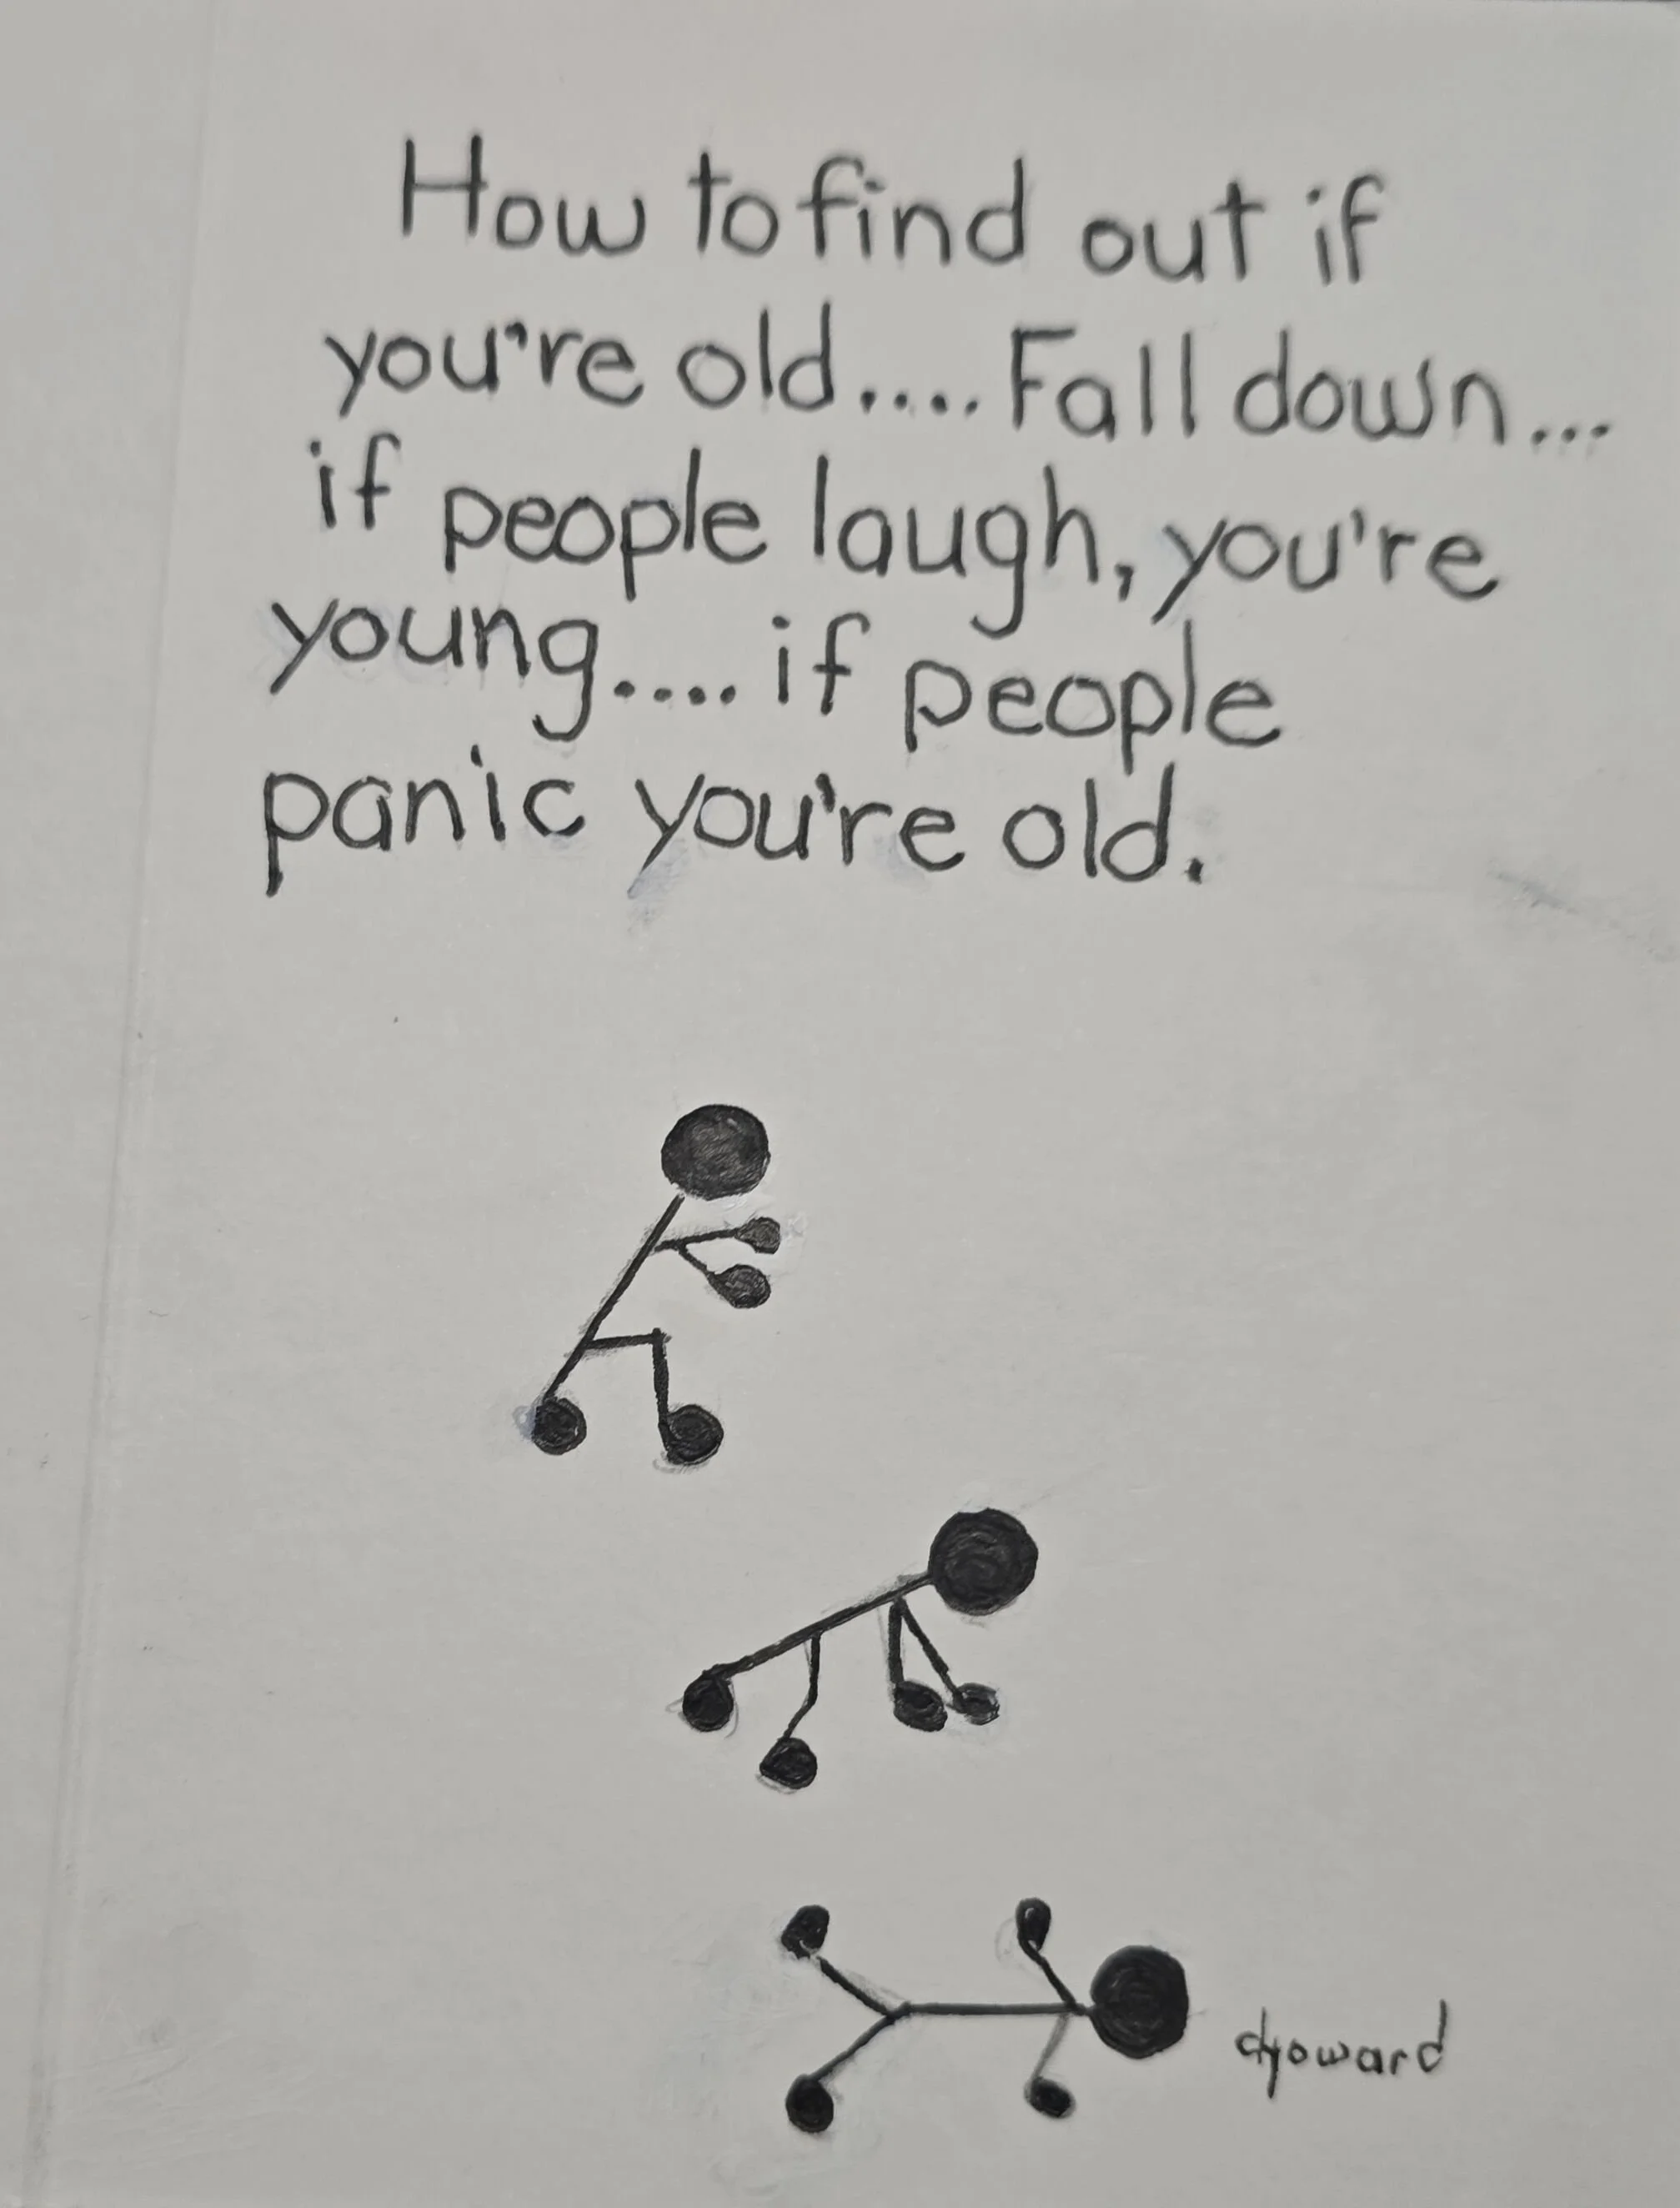 How to find out if
you're old.... Fall down...
if people laugh, you're
young.... if people
panic you're old.